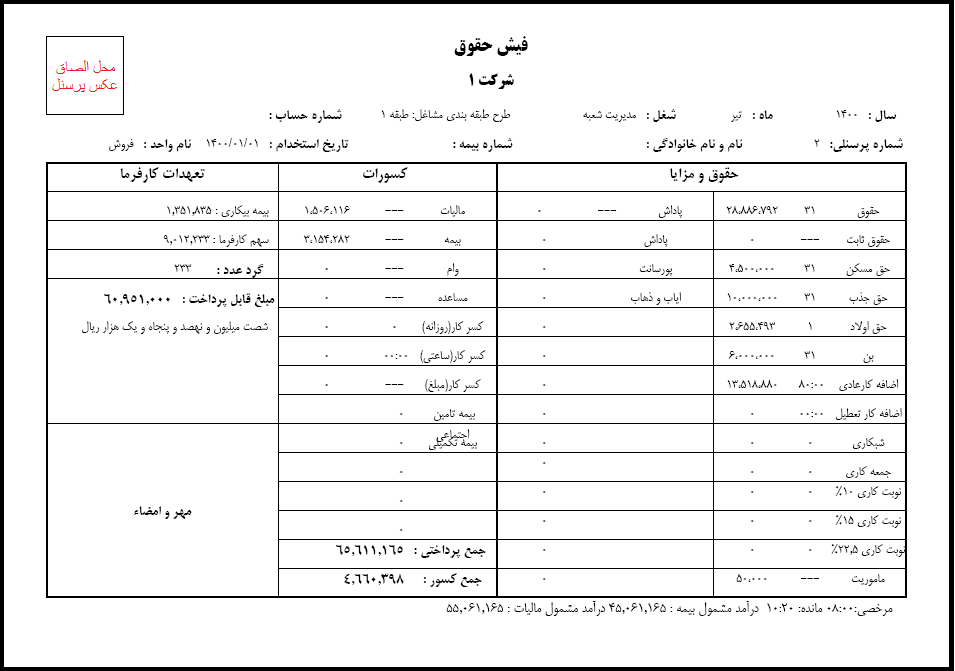 فیش حقوق
شرکت ۱
محل الصاق
عکس پرسنل
سال : ۱۴۰۰ ماه : تیر شغل : مدیریت شعبه طرح طبقه بندی مشاغل: طبقه ۱ شماره حساب :
شماره پرسنلی: ۲ نام و نام خانوادگی : شماره بیمه : تاریخ استخدام : ۱۴۰۰/۰۱/۰۱ نام واحد : فروش
حقوق و مزایا کسورات تعهدات کارفرما
حقوق ۳۱ ۲۸،۸۸۶،۷۹۲ پاداش --- ۰ مالیات --- ۱،۵۰۶،۱۱۶ بیمه بیکاری : ۱,۳۵۱,۸۳۵
حقوق ثابت --- ۰ پاداش ۰ بیمه --- ۳،۱۵۴،۲۸۲ سهم کارفرما : ۹,۰۱۲,۲۳۳
حق مسکن ۳۱ ۴،۵۰۰،۰۰۰ پورسانت ۰ وام --- ۰ گرد عدد : ۲۳۳
حق جذب ۳۱ ۱۰،۰۰۰،۰۰۰ ایاب و ذهاب ۰ مساعده --- ۰ مبلغ قابل پرداخت : ۶۰,۹۵۱,۰۰۰
حق اولاد ۱ ۲،۶۵۵،۴۹۳ ۰ کسر کار(روزانه) ۰ ۰ شصت میلیون و نهصد و پنجاه و یک هزار ریال
بن ۳۱ ۶،۰۰۰،۰۰۰ ۰ کسر کار(ساعتی) ۰۰:۰۰ ۰
اضافه کارعادی ۸۰:۰۰ ۱۳،۵۱۸،۸۸۰ ۰ کسر کار(مبلغ) --- ۰
اضافه کار تعطیل ۰۰:۰۰ ۰ ۰ بیمه تامین اجتماعی ۰
شبکاری ۰ ۰ ۰ بیمه تکمیلی ۰
جمعه کاری ۰ ۰ ۰ ۰
نوبت کاری ۱۰% ۰ ۰ ۰ ۰
مهر و امضاء
نوبت کاری ۱۵% ۰ ۰ ۰ ۰
نوبت کاری ۲۲,۵% ۰ ۰ ۰ جمع پرداختی : ۶۵,۶۱۱,۱۶۵
ماموریت --- ۵۰،۰۰۰ ۰ جمع کسور : ۴,۶۶۰,۳۹۸
مرخصی:۰۸:۰۰ مانده: ۱۰:۲۰ درآمد مشمول بیمه : ۴۵,۰۶۱,۱۶۵ درآمد مشمول مالیات : ۵۵,۰۶۱,۱۶۵